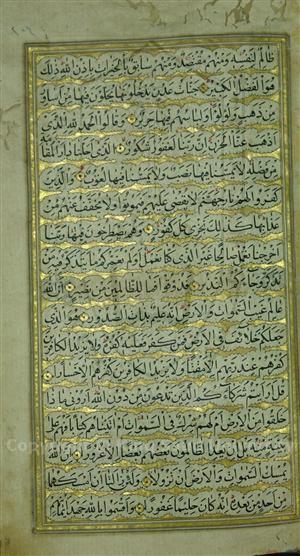 ظالم لنفسه ومنهم مقتصد ومنهم سابق بالخيرات باذن الله ذلك
هو الفضل الكبير جنات عدن يدخلونها يحلون فيها من اساور
من ذهب ولؤلؤا ولباسهم فيها حرير وقالوا الحمد لله الذي
اذهب عنا الحزن ان ربنا لغفور شكور الذي احلنا دار المقامة
من فضله لا يمسنا فيها نصب ولا يمسنا فيها لغوب والذين
كفروا لهم نار جهنم لا يقضى عليهم فيموتوا ولا يخفف عنهم من
عذابها كذلك نجزي كل كفور وهم يصطرخون فيها ربنا
اخرجنا نعمل صالحا غير الذي كنا نعمل اولم نعمركم ما يتذكر فيه من
تذكر وجاءكم النذير فذوقوا فما للظالمين من نصير ان الله
عالم غيب السموات والارض انه عليم بذات الصدور هو الذي
جعلكم خلائف في الارض فمن كفر فعليه كفره ولا يزيد الكافرين
كفرهم عند ربهم الا مقتا ولا يزيد الكافرين كفرهم الا خسارا
قل ارايتم شركاءكم الذين تدعون من دون الله اروني ماذا
خلقوا من الارض ام لهم شرك في السموات ام اتيناهم كتابا فهم على
بينت منه بل ان يعد الظالمون بعضهم بعضا الا غرورا ان الله
يمسك السموات والارض ان تزولا ولئن زالتا ان امسكهما
من احد من بعده انه كان حليما غفورا واقسموا بالله جهد ايمانهم